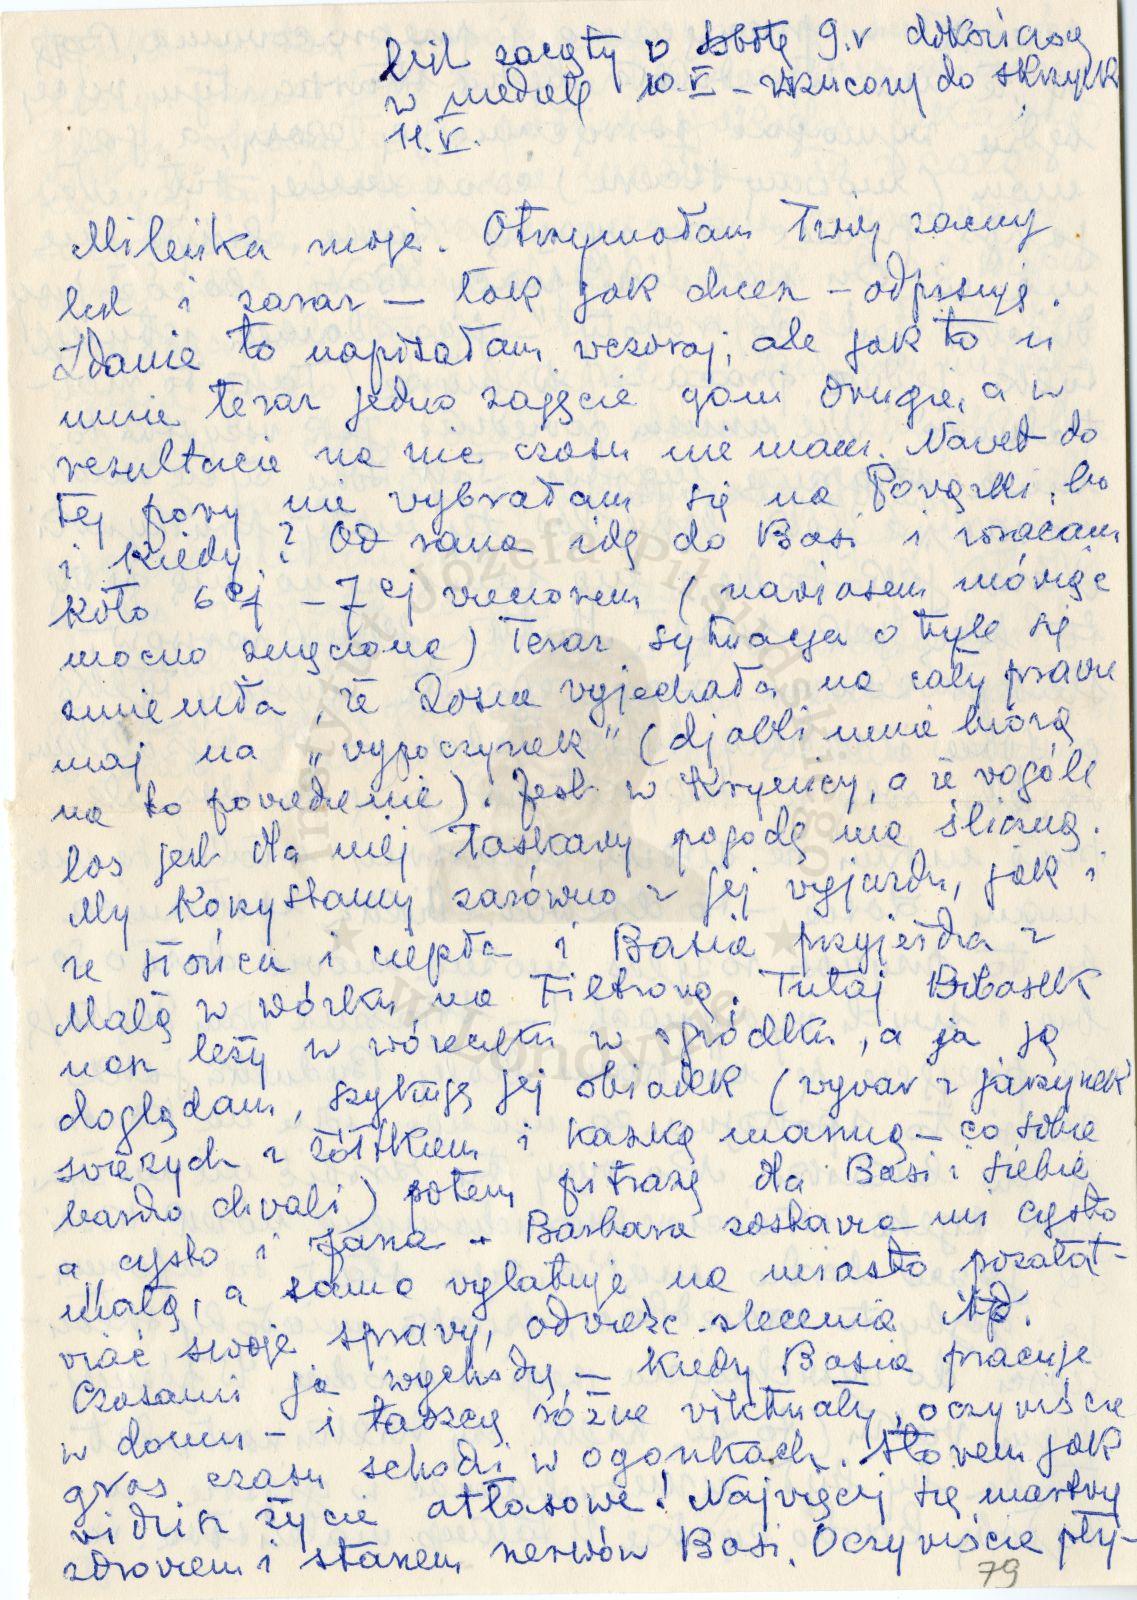 List zaczęty w sobotę 9.v dokończony
w niedzielę 10.V – wrzucony do skrzynki
11.V.
Mileńka moja. Otrzymałam Twój zacny
list i zaraz – tak jak chcesz – odpisuję.
Zdanie to napisałam wczoraj, ale jak to u
mnie teraz jedno zajęcie goni drugie, a w
rezultacie na nic czasu nie mam. Nawet do
tej pory nie wybrałam się na Powązki, bo
i kiedy? Od rana idę do Basi i wracam
koło 6ej – 7ej wieczorem (nawiasem mówiąc
mocno zmęczona) Teraz sytuacja o tyle się
zmieniła, że Zosia wyjechała na cały prawie
maj na „wypoczynek" (djabli mnie biorą
na to powiedzenie). Jest w Krynicy, a że wogóle
los jest dla niej łaskawy pogodę ma śliczną.
My korzystamy zarówno z jej wyjazdu, jak i
ze słońca i ciepła i Basia przyjeżdża z
Małą w wózku na Filtrową. Tutaj Bobasek
nasz leży w wózeczku w ogródku, a ja ją
doglądam, szykuję jej obiadek (wywar z jarzynek
świeżych z żółtkiem i kaszką manną – co sobie
bardzo chwali) potem pitraszę dla Basi i siebie
a często i Jana – Barbara zostawia mi często
Małą, a sama wylatuje na miasto pozałat-
wiać swoje sprawy, odwieźć zlecenia itp.
Czasami ja wychodzę, – kiedy Basia pracuje
w domu – i taszczę różne wiktuały, oczywiście
gros czasu schodzi w ogonkach. Słowem jak
widzisz życie atłasowe! Najwięcej się martwię
zdrowiem i stanem nerwów Basi. Oczywiście przy-
79
Instytut Józefa Piłsudskiego
w Londynie